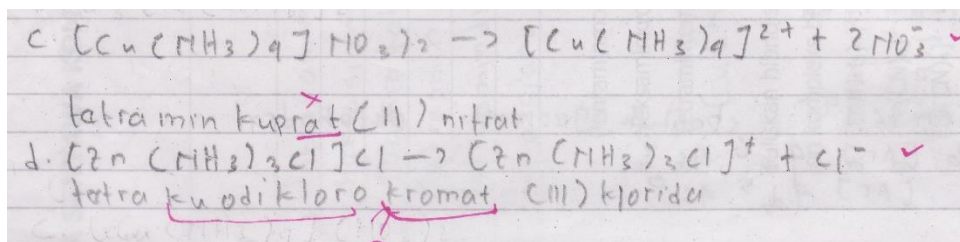 c. [Cu(NH3)4] NO3)2 -> [Cu(NH3)4]2+ + 2NO3-
tetra min kuprat (II) nitrat
d. [Zn (NH3)3Cl]Cl -> [Zn (NH3)3Cl]+ + Cl-
tetra kuodikloro kromat (III) klorida